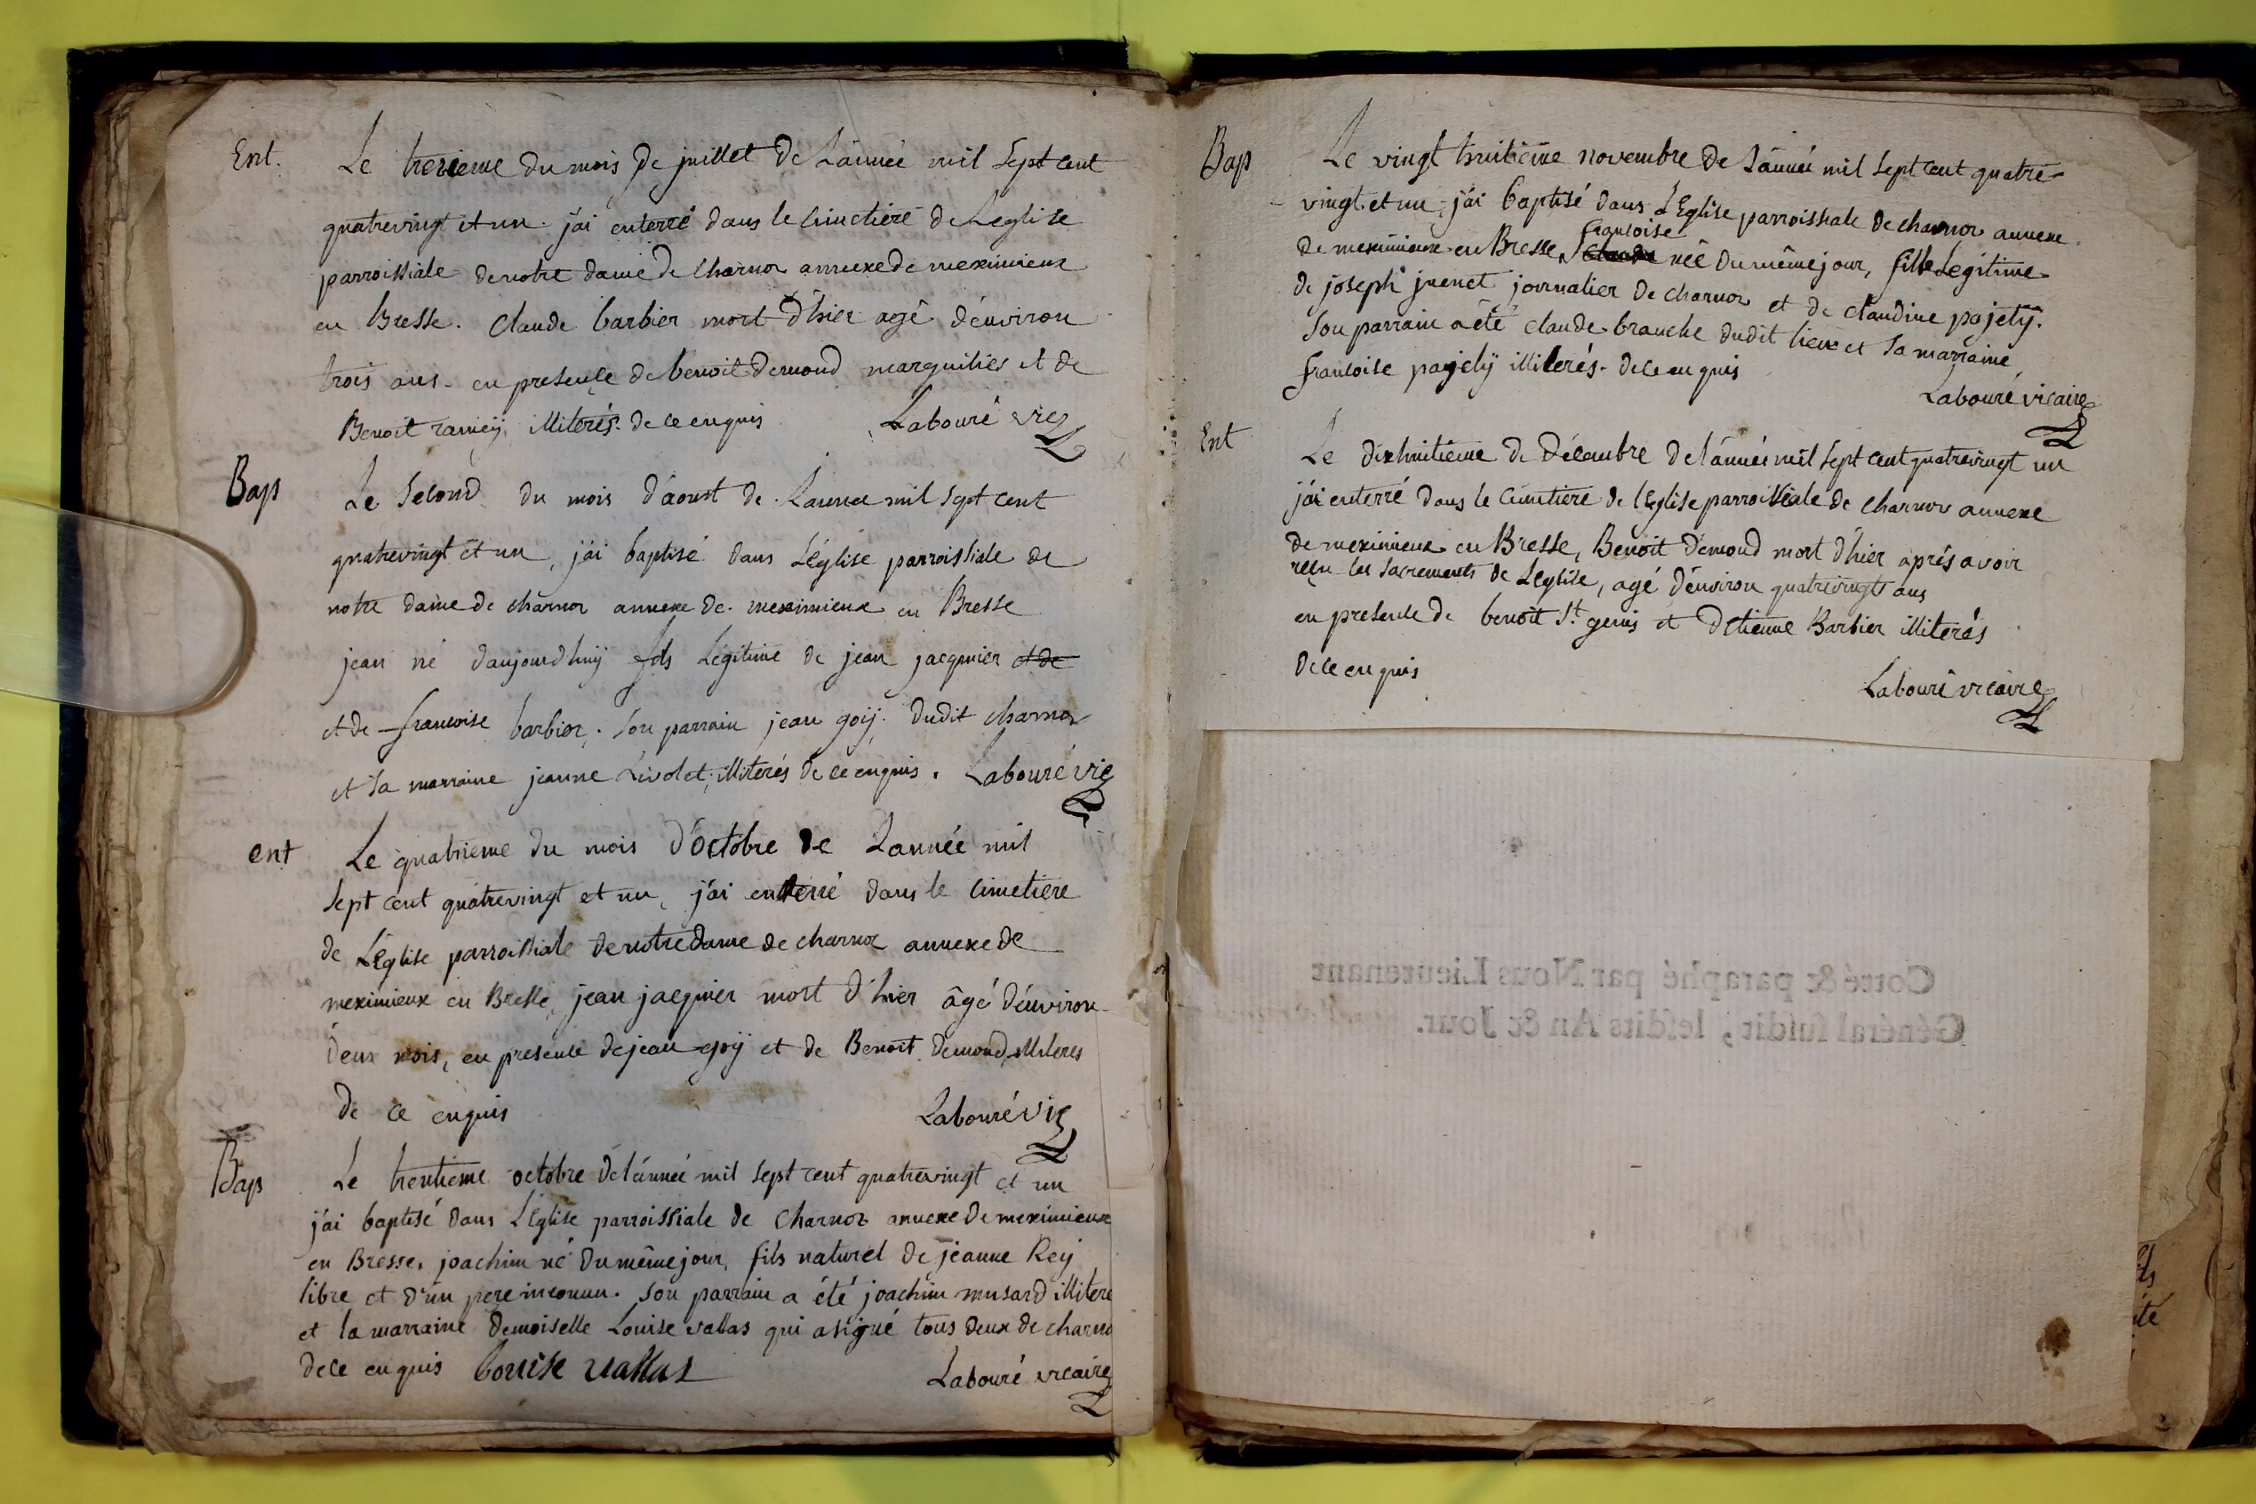 Ent.
Le trezieme du mois de juillet de L'année mil sept cent
quatrevingt et un j'ai enterré dans le cimetiere de Leglise
parroissiale de notre dame de charnoz annexe de meximieux
en Bresse. Claude barbier mort d'hier agé d'environ
trois ans. en presence de benoit demond marguilier et de
Benoit ramey, illiterés de ce enquis Labouré vic
Bap
Le second du mois d'aoust de L'année mil sept cent
quatrevingt et un, j'ai baptisé dans L'église parroissiale de
notre dame de charnoz annexe de meximieux en Bresse
jean né d'aujourdhuy fils légitime de jean jacquier et de
et de francoise barbier. Son parrain jean goÿ dudit charnoz
et sa marraine jeanne Livolet, illiterés de ce enquis. Labouré vic
ent
Le quatrieme du mois d'octobre de L'année mil
sept cent quatrevingt et un, j'ai enterré dans le cimetiere
de L'église parroissiale de notre dame de charnoz annexe de
meximieux en Bresse, jean jacquier mort d'hier âgé d'environ
deux mois, en presence de jean goÿ et de Benoit demond, illiteres
de ce enquis Labouré vic
Bap
Le trentieme octobre de l'année mil sept cent quatrevingt et un
j'ai baptisé dans L'Eglise parroissiale de charnoz annexe de meximieux
en Bresse. joachim né du même jour, fils naturel de jeanne Rey
libre et d'un pere inconnu. Son parrain a été joachim musard illiteré
et la marraine demoiselle Louise vallas qui a signé tous deux de charno
de ce enquis Louise vallas Labouré vicaire
Bap
Le vingt huitième novembre de L'année mil sept cent quatre
vingt et un, j'ai baptisé dans L'Eglise parroissiale de charnoz annexe
francoise
de meximieux en Bresse, née du même jour, fille Legitime
de joseph juenet journalier de charnoz et de claudine pajety.
Son parrain a été claude branche dudit lieu et sa marraine
francoise pajetÿ illiterés. de ce enquis
Labouré vicaire
Ent
Le dixhuitième de Décembre de l'année mil sept cent quatrevingt un
j'ai enterré dans le cimetiere de l'Eglise parroissiale de charnoz annexe
de meximieux en Bresse, Benoit demond mort d'hier après avoir
reçu les sacrements de Leglise, agé d'environ quatrevingts ans
en presence de benoit St. genis et d'etienne Barbier illiterés
de ce enquis
Labouré vicaire
Cotté & paraphé par Nous Lieutenant
Général susdit, lesdits An & Jour.